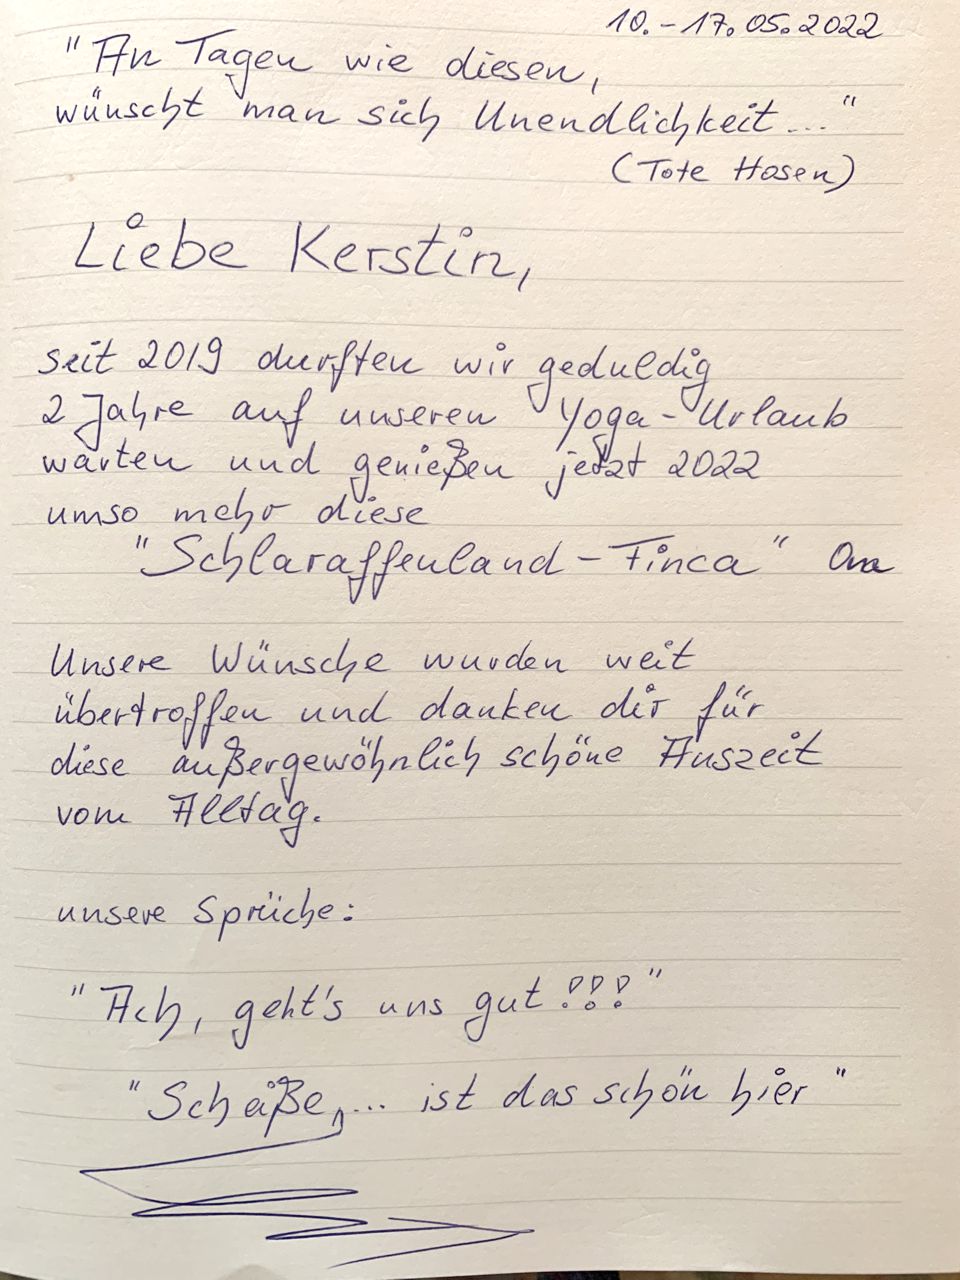 10.-17.05.2022
"An Tagen wie diesen,
wünscht man sich Unendlichkeit..."
(Tote Hosen)
Liebe Kerstin,
seit 2019 durften wir geduldig
2 Jahre auf unseren Yoga-Urlaub
warten und genießen jetzt 2022
umso mehr diese
"Schlaraffenland-Finca"
Unsere Wünsche wurden weit
übertroffen und danken dir für
diese außergewöhnlich schöne Auszeit
vom Alltag.
unsere Sprüche:
"Ach, geht's uns gut!!!"
"Scheiße,... ist das schön hier"